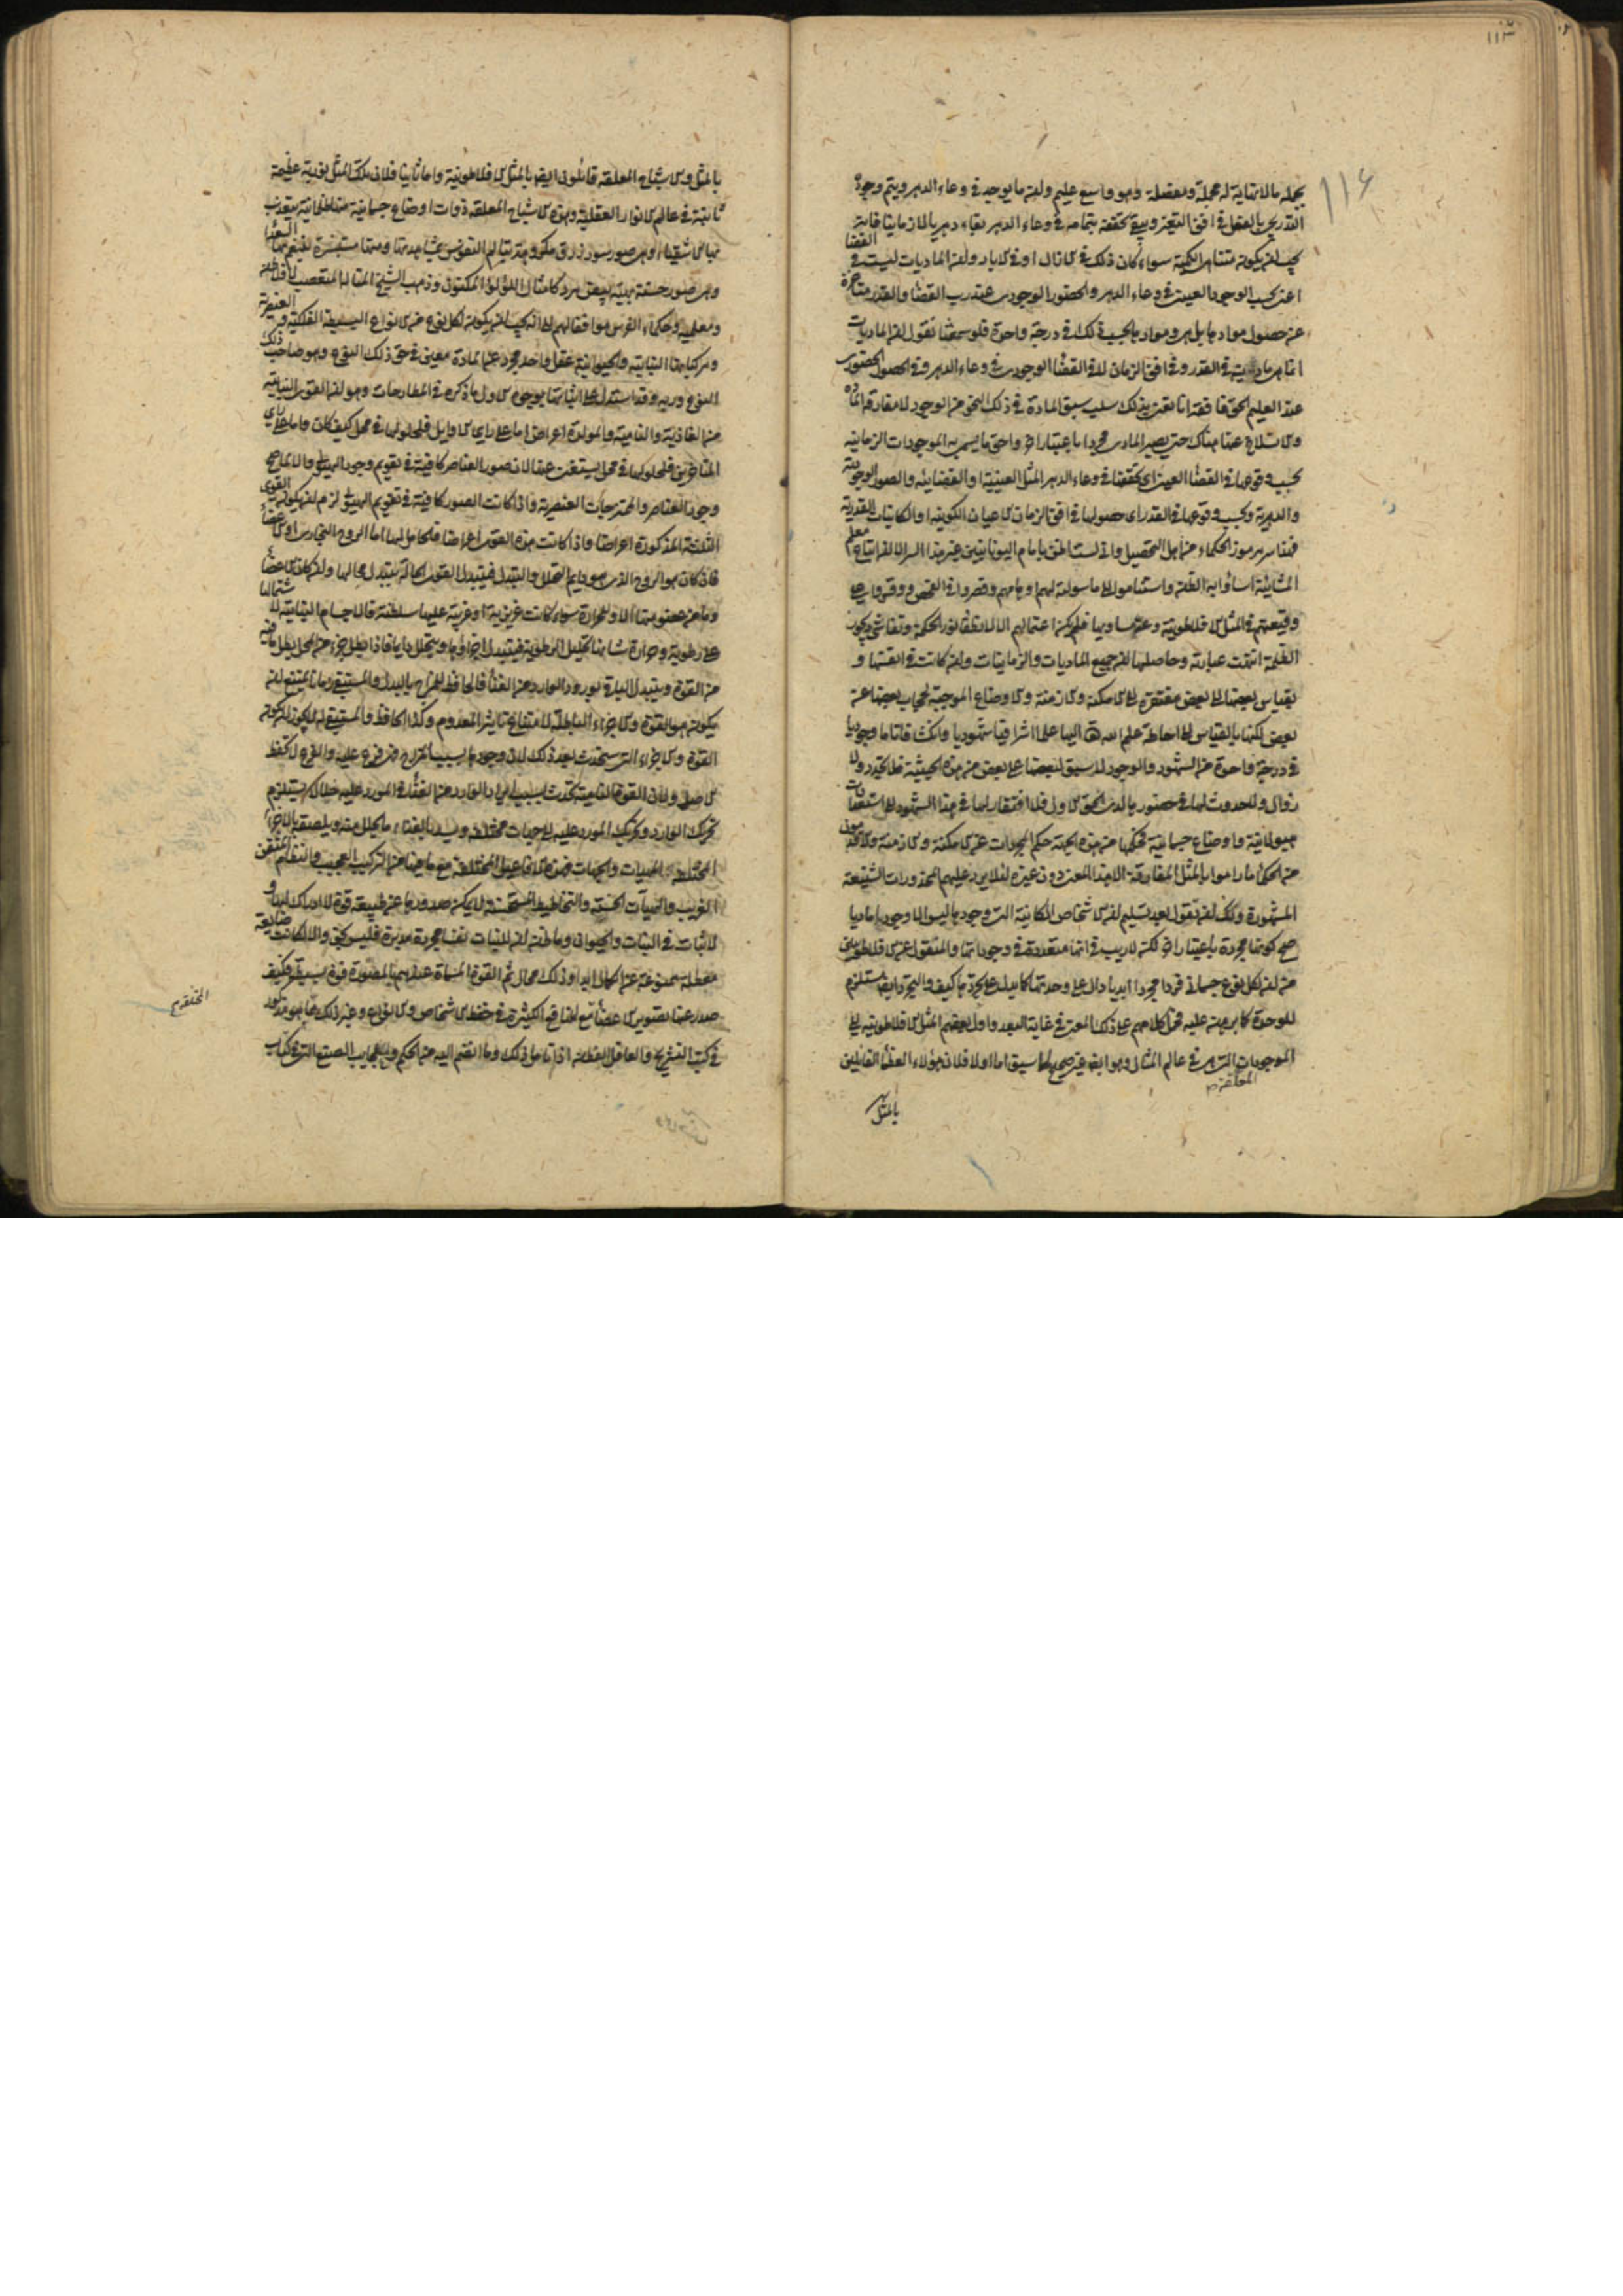 ١١٣
١١٤
بجمله ما لا نهاية له مجملة ومفصلة وهو واسع عليم ولان ما يوجد في وعاء الدهر ويتم وجوده
التدريجي بالفعل في افق التغير ويبقى تحققه بتمامه في وعاء الدهر بقاء دهريا لا زمانيا فانه
يجب ان يكون متناهى الكمية سواء كان ذلك في الازال او في الاباد ولان الماديات ليست في القضاء
اعنى بحسب الوجود العينى في وعاء الدهر والحضور الوجودى عند رب القضاء والقدر متاخرة
عن حصول موادها بل هى وموادها بحسب ذلك في درجة واحدة فلو سمعتنا نقول ان الماديات
انما هى مادية في القدر وفى افق الزمان لا في القضاء الوجودى في وعاء الدهر وفى الحصول الحضورى
عند العليم الحق فافقه انا نعنى بذلك سلب سبق المادة في ذلك النحو من الوجود لا مفارقة المادة
والانسلاخ عنها هناك حتى يصير المادى مجردا باعتبار آخر واحق ما يسمى به الموجودات الزمانية
بحسب وقوعها في القضاء العينى اى تحققها في وعاء الدهر المثل العينية او القضائية والصور الوجودية
والدهرية وبحسب وقوعها في القدر اى حصولها في افق الزمان الاعيان الكونية او الكائنات القدرية
فهذا سر مرموز الحكماء من اهل التحصيل وانى لست اظن بامام اليونانيين غير هذا السر الا ان اتباع معلم
المشائية اساؤا به الظن واستناموا الى ما سولته لهم اوهامهم وقصروا في الفحص ووفروا على
وقيعتهم في المثل الافلاطونية وعيبها ومساويها فلم يكن اعتمالهم الا لانطفاء نور الحكمة وتفاشى ديجور
الظلمة انتهت عبارته وحاصلها ان جميع الماديات والزمانيات وان كانت في انفسها و
بقياس بعضها الى بعض مفتقرة الى الامكنة والازمنة والاوضاع الموجبة لحجاب بعضها عن
بعض لكنها بالقياس الى احاطة علم الله تعالى اليها علما اشراقيا شهوديا وانكشافا تاما وجوديا
في درجة واحدة من الشهود والوجود لا سبق لبعضها على بعض من هذه الحيثية فلا تجدد ولا
زوال ولا حدوث لها في حضورها لدى الحق الاول فلا افتقار لها في هذا الشهود الى استعدادات
هيولانية واوضاع جسمانية فحكمها من هذه الجهة حكم المجردات عن الامكنة والازمنة والاقدمون
من الحكماء ما راموا بالمثل المفارقة الا هذا المعنى دون غيره لئلا يرد عليهم المحذورات الشنيعة
المشهورة ولك ان تقول بعد تسليم ان الاشخاص الكيانية التى وجودها ليس الا وجودا ماديا
صح كونها مجردة باعتبار آخر لكنه لا ريب في انها متعددة في وجوداتها والمنقول عن افلاطون
من ان لكل نوع جسمانى فردا مجردا ابديا دال على وحدتها كما يدل على تجردها كيف والتجرد ايضا مستلزم
للوحدة كما برهن عليه فحمل كلامهم على ذلك المعنى في غاية البعد واول بعضهم المثل الافلاطونية الى
الموجودات المعلقة التى هى في عالم المثال وهو ايضا غير صحيح لما سبق اما اولا فلان هؤلاء العظماء القائلين
بالمثل
بالمثل والاشباح المعلقة قائلون ايضا بالمثل الافلاطونية واما ثانيا فلان تلك المثل نورية عظيمة
ثابتة في عالم الانوار العقلية وهذه الاشباح المعلقة ذوات اوضاع جسمانية منها ظلمانية يتعذب
بها الاشقياء وهى صور سود زرق مكروهة يتألم النفوس بمشاهدتها ومنها مستنيرة يتنعم بها السعداء
وهى صور حسنة بهية بيض مرد كامثال اللؤلؤ المكنون وذهب الشيخ المتاله المتعصب لافلاطون
ومعلميه وحكماء الفرس موافقا لهم الى انه يجب ان يكون لكل نوع من الانواع البسيطة الفلكية والعنصرية
ومركباتها النباتية والحيوانية عقل واحد مجرد عن المادة معتنى في حق ذلك النوع وهو صاحب ذلك
النوع وربه وقد استدل على اثباتها بوجوه الاول ما ذكره في المطارحات وهو ان القوى النباتية
من الغاذية والنامية والمولدة اعراض اما على راى الاوايل فلحلولها في محل كيف كان واما على راى
المتاخرين فلحلولها في محل يستغنى عنها لان صور العناصر كافية في تقويم وجود الهيولى والا لما صح
وجود العناصر والممتزجات العنصرية واذا كانت الصور كافية في تقويم الهيولى لزم ان يكون القوى
الثلثة المذكورة اعراضا واذا كانت هذه القوى اعراضا فالحامل لها اما الروح البخارى او الاعضاء
فان كان هو الروح الذى هو دايم التحلل والتبدل فيتبدل القوى الحالة بتبدل محالها وان كان الاعضاء
وما من عضو منها الا وللحرارة سواء كانت غريزية او غريبة عليها سلطنة فالاجسام النباتية لاشتمالها
على رطوبة وحرارة شانها تحليل الرطوبة فيتبدل اجزاؤها ويتحلل دايما فاذا بطل جزء من المحل بطل ما فيه
من القوة ويتبدل الباقى بورود الوارد من الغذاء فالحافظ للمزاج بالبدل والمستبقى زمانا يمتنع ان
يكون هو القوة والاجزاء الباطلة لامتناع تاثير المعدوم وكذا الحافظ والمستبقى له لا يجوز ان يكون
القوة والاجزاء التى ستحدث بعد ذلك لان وجودها بسبب المزاج فهى فرع عليه والفرع لا يحفظ
الاصل ولان القوة النامية تحدث بسبب ايراد الوارد من الغذاء في المورد عليه خللا يستلزم
تحريك الوارد وتحريك المورد عليه الى جهات مختلفة ويسد بالغذاء ما تحلل منه ويلصقه بالاجزاء
المختلفة الهيئات والجهات فهذه الافاعيل المختلفة مع ما فيها من التركيب العجيب والنظام المتقن
الغريب والهيآت الحسنة والتخاطيط المستحسنة لا يمكن صدورها عن طبيعة قوة لا ادراك لها و
لا ثبات في النبات والحيوان وما ظن ان للنبات نفسا مجردة مدبرة فليس بحق والا لكانت ضايعة
معطلة ممنوعة عن الكمال ابدا وذلك محال ثم القوة المسماة عندهم بالمصورة قوة بسيطة فكيف
صدر عنها تصوير الاعضاء مع المنافع الكثيرة في حفظ الاشخاص والانواع وغير ذلك مما هو مذكور
في كتب التشريح والعاقل الفطن اذا تامل ذلك وما انضم اليه من الحكم والعجايب الصنع التى في كتاب